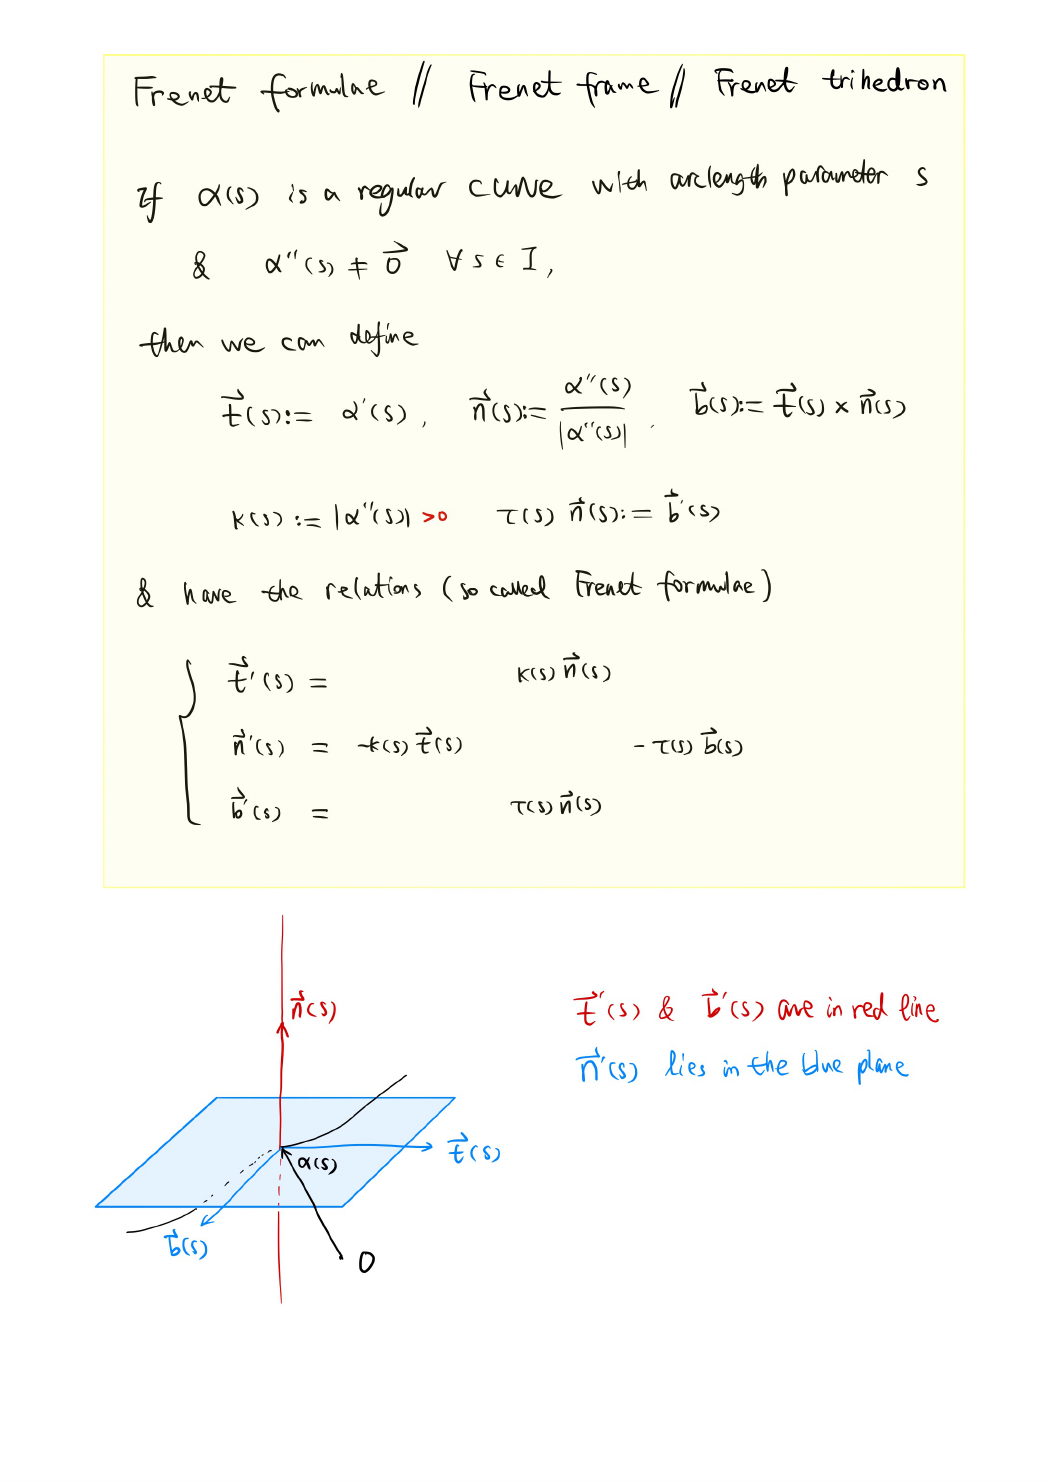 Frenet formulae // Frenet frame // Frenet trihedron
If α(s) is a regular curve with arclength parameter s
& α''(s) ≠ 0⃗ ∀ s ∈ I,
then we can define
t⃗(s) := α'(s), n⃗(s) := α''(s) / |α''(s)|, b⃗(s) := t⃗(s) × n⃗(s)
k(s) := |α''(s)| >0 τ(s) n⃗(s) := b⃗'(s)
& have the relations (so called Frenet formulae)
t⃗'(s) = k(s) n⃗(s)
n⃗'(s) = -k(s) t⃗(s) - τ(s) b⃗(s)
b⃗'(s) = τ(s) n⃗(s)
n⃗(s)
t⃗'(s) & b⃗'(s) are in red line
n⃗'(s) lies in the blue plane
t⃗(s)
α(s)
b⃗(s)
O